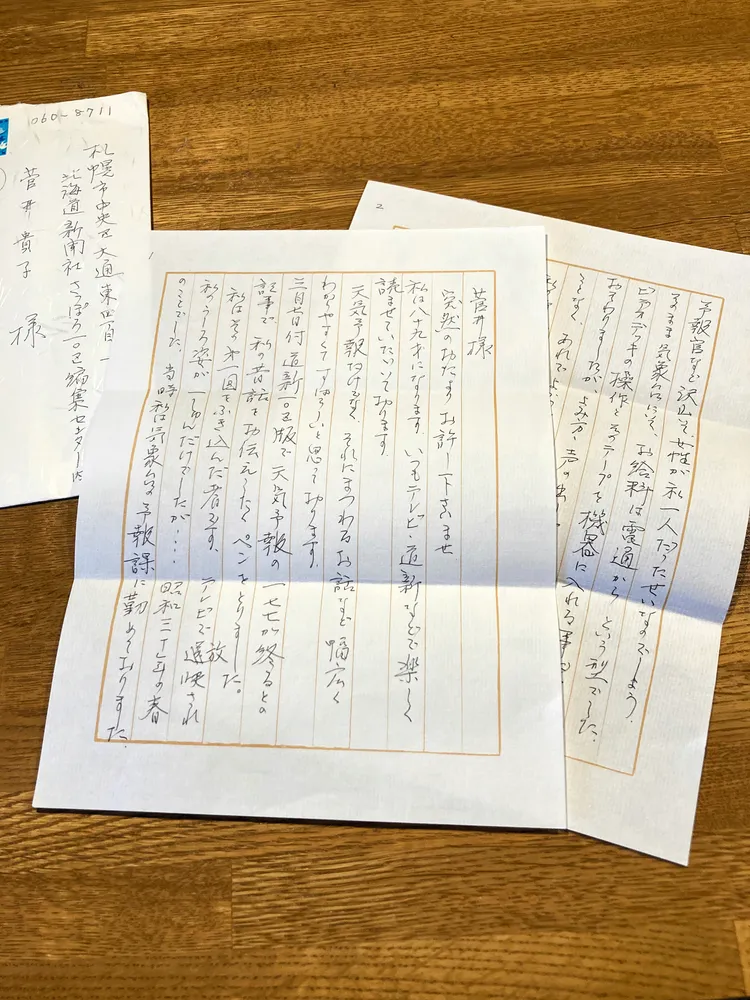 060-8711
札幌市中央区大通東四丁目一
北海道新聞社 さっぽろ10区編集センター内
菅井貴子 様
菅井様
突然のおたより お許し下さいませ
私は八十九才になります。いつもテレビ・道新などで楽しく
読ませていただいて居ります。
天気予報だけでなく それにまつわるお話など幅広く
わかりやすくてすばらしいと思って居ります。
三月七日付道新10区版で天気予報の一七七が終るとの
記事で、私の昔話をお伝えしたくペンをとりました。
私はその第一回をふき込んだ者です。 テレビで放映され
私のうしろ姿が一しゅんだけでしたが‥‥ 昭和三十年の春
のことでした。当時私は気象台の予報課に勤めておりました。
2
予報官など沢山で女性が私一人だったせいなのでしょう。
そのまま気象台にいて、お給料は電通から という型でした。
ビデオデッキの操作とそのテープを機器に入れる事も
おそわりましたが、よみ方、声の出し
ことなく、あれでよか